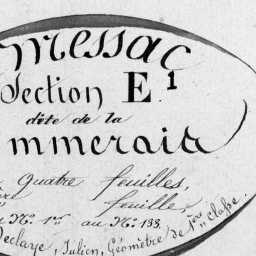 messac
Section E.1
dite de la
mmeraia
Quatre feuilles,
feuille,
N.° 1.er au N.° 133.
Declaye, Julien, Géomètre de 1.ère Classe.